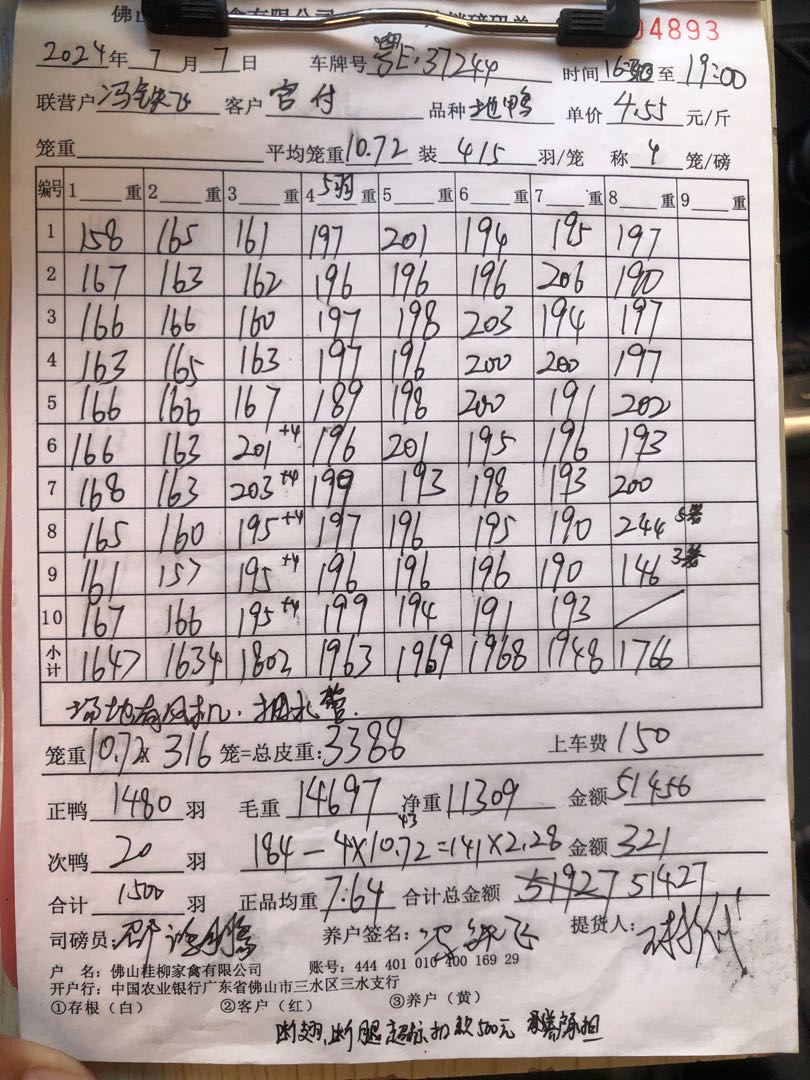 佛山 食有限公司 磅码单 04893
2024年7月7日 车牌号 粤E·37244 时间 至19:00
联营户 冯铁飞 客户 官付 品种 地鸭 单价 4.55 元/斤
笼重 平均笼重10.72 装 415 羽/笼 称 4 笼/磅
编号 1 重 2 重 3 重 4 5羽 重 5 重 6 重 7 重 8 重 9 重
1 158 165 161 197 201 194 195 197
2 167 163 162 196 196 196 206 190
3 166 166 160 197 198 203 194 197
4 163 165 163 197 196 200 200 197
5 166 166 167 189 198 200 191 202
6 166 163 201+4 196 201 195 196 193
7 168 163 203+4 199 193 198 193 200
8 165 160 195+4 197 196 195 190 244 5笼
9 161 157 195+4 196 196 196 190 146 3笼
10 167 166 195+4 199 194 191 193
小计 1647 1634 1802 1963 1969 1968 1948 1766
场地有风机
笼重10.72x 316 笼=总皮重:3388 上车费 150
正鸭 1480 羽 毛重 14697 净重 11309 金额 51456
次鸭 20 羽 184-4×10.72=141×2.28 金额 321
43
合计 1500 羽 正品均重 7.64 合计总金额 51927 51427
司磅员: 养户签名: 冯铁飞 提货人:
户 名: 佛山桂柳家禽有限公司 账号: 444 401 010 400 169 29
开户行: 中国农业银行广东省佛山市三水区三水支行
①存根(白) ②客户(红) ③养户(黄)
断翅、断腿超标扣款500元